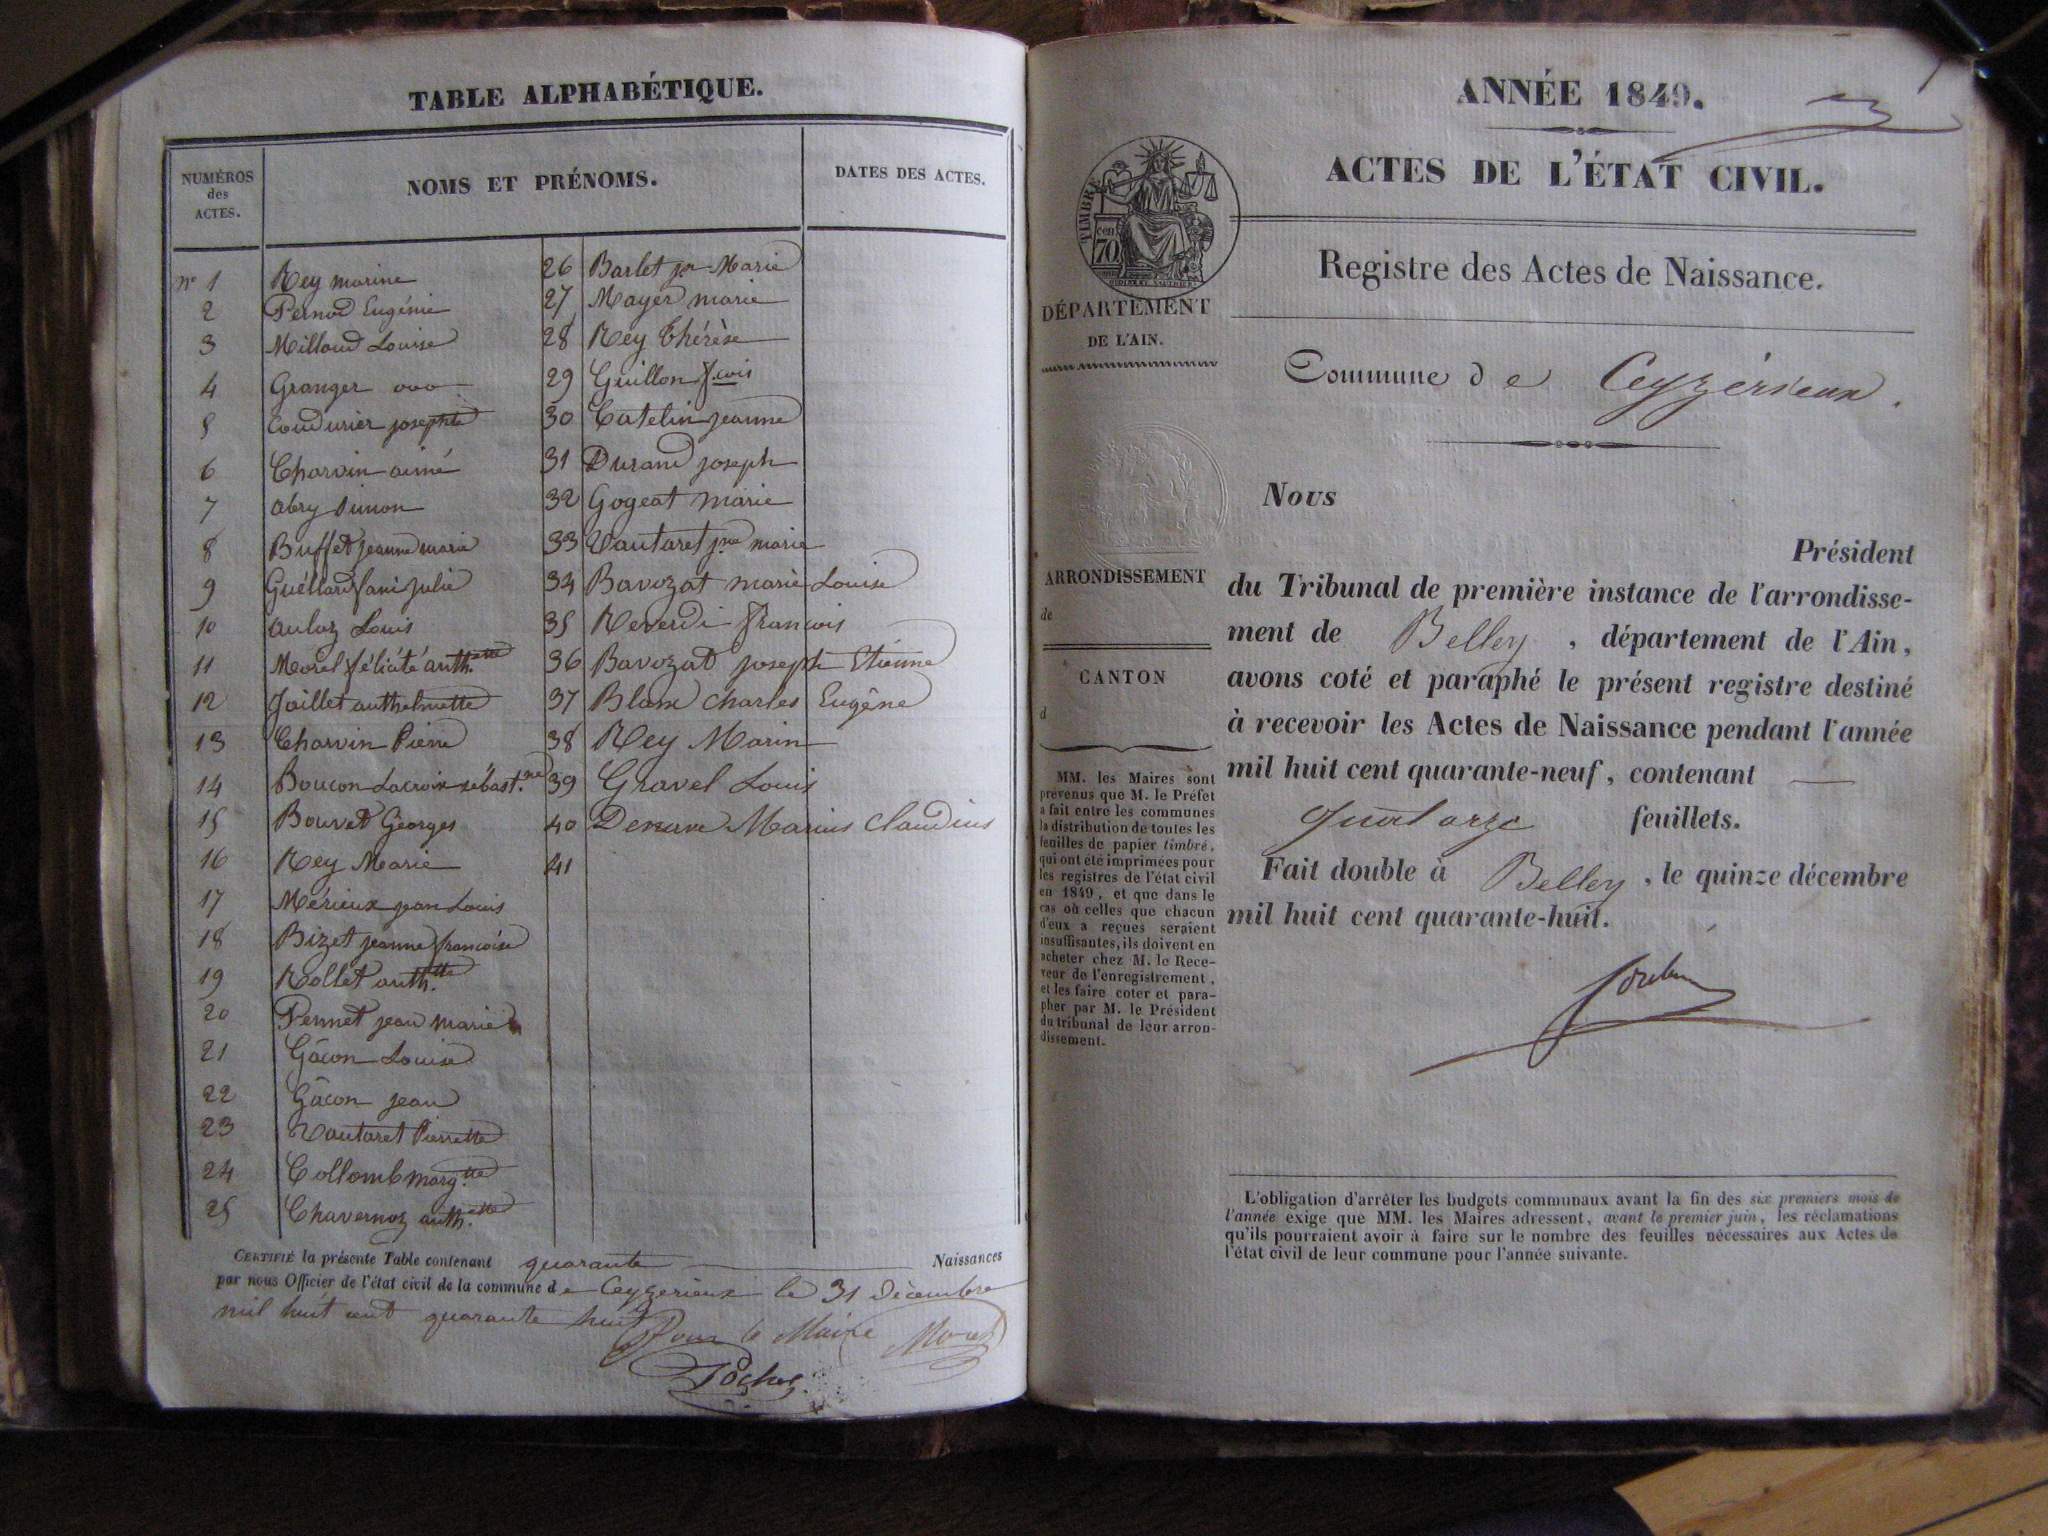 TABLE ALPHABÉTIQUE.
NUMÉROS
des
ACTES.
NOMS ET PRÉNOMS.
DATES DES ACTES.
n° 1 Rey marine
2 Pernod Eugénie
3 Milloud Louise
4 Granger
5 Coudurier josephte
6 Charvin aimé
7 abry
8 Buffet jeanne marie
9 julie
10 Louis
11 Morel félicité anth.ette
12 Jaillet anthelmette
13 Charvin Pierre
14 Boucon Lacroix sébast.
15 Bouvet Georges
16 Rey Marie
17 Mérieux jean Louis
18 Bizet jeanne françoise
19 Rollet anth.tte
20 Pennet jean marie
21 Gâcon Louise
22 Gâcon jean
23 Vautaret Pierrette
24 Collomb marg.tte
25 Chavernoz anth.ette
26 Barlet Marie
27 Mayer marie
28 Rey Thérèse
29 Guillon f.cois
30 Catelin jeanne
31 Durand joseph
32 Gogeat marie
33 Vautaret jne marie
34 Bavozat marie Louise
35 Reverdi françois
36 Bavozat joseph Etienne
37 Blanc charles Eugène
38 Rey Marin
39 Gravel Louis
40 Marius Claudius
41
CERTIFIÉ la présente Table contenant quarante Naissances
par nous Officier de l'état civil de la commune de Ceyzerieux le 31 Décembre
mil huit cent quarante huit
Pour le Maire
Pochet
ANNÉE 1849.
ACTES DE L'ÉTAT CIVIL.
TIMBRE
cen
70
DÉPARTEMENT
DE L'AIN.
Registre des Actes de Naissance.
Commune de Ceyzérieux.
Nous
Président
du Tribunal de première instance de l'arrondisse-
ment de Belley, département de l'Ain,
avons coté et paraphé le présent registre destiné
à recevoir les Actes de Naissance pendant l'année
mil huit cent quarante-neuf, contenant
quatorze feuillets.
Fait double à Belley, le quinze décembre
mil huit cent quarante-huit.
ARRONDISSEMENT
de
CANTON
d
MM. les Maires sont
prévenus que M. le Préfet
a fait entre les communes
la distribution de toutes les
feuilles de papier timbré,
qui ont été imprimées pour
les registres de l'état civil
en 1849, et que dans le
cas où celles que chacun
d'eux a reçues seraient
insuffisantes, ils doivent en
acheter chez M. le Rece-
veur de l'enregistrement,
et les faire coter et para-
pher par M. le Président
du tribunal de leur arron-
dissement.
L'obligation d'arrêter les budgets communaux avant la fin des six premiers mois de
l'année exige que MM. les Maires adressent, avant le premier juin, les réclamations
qu'ils pourraient avoir à faire sur le nombre des feuilles nécessaires aux Actes de
l'état civil de leur commune pour l'année suivante.